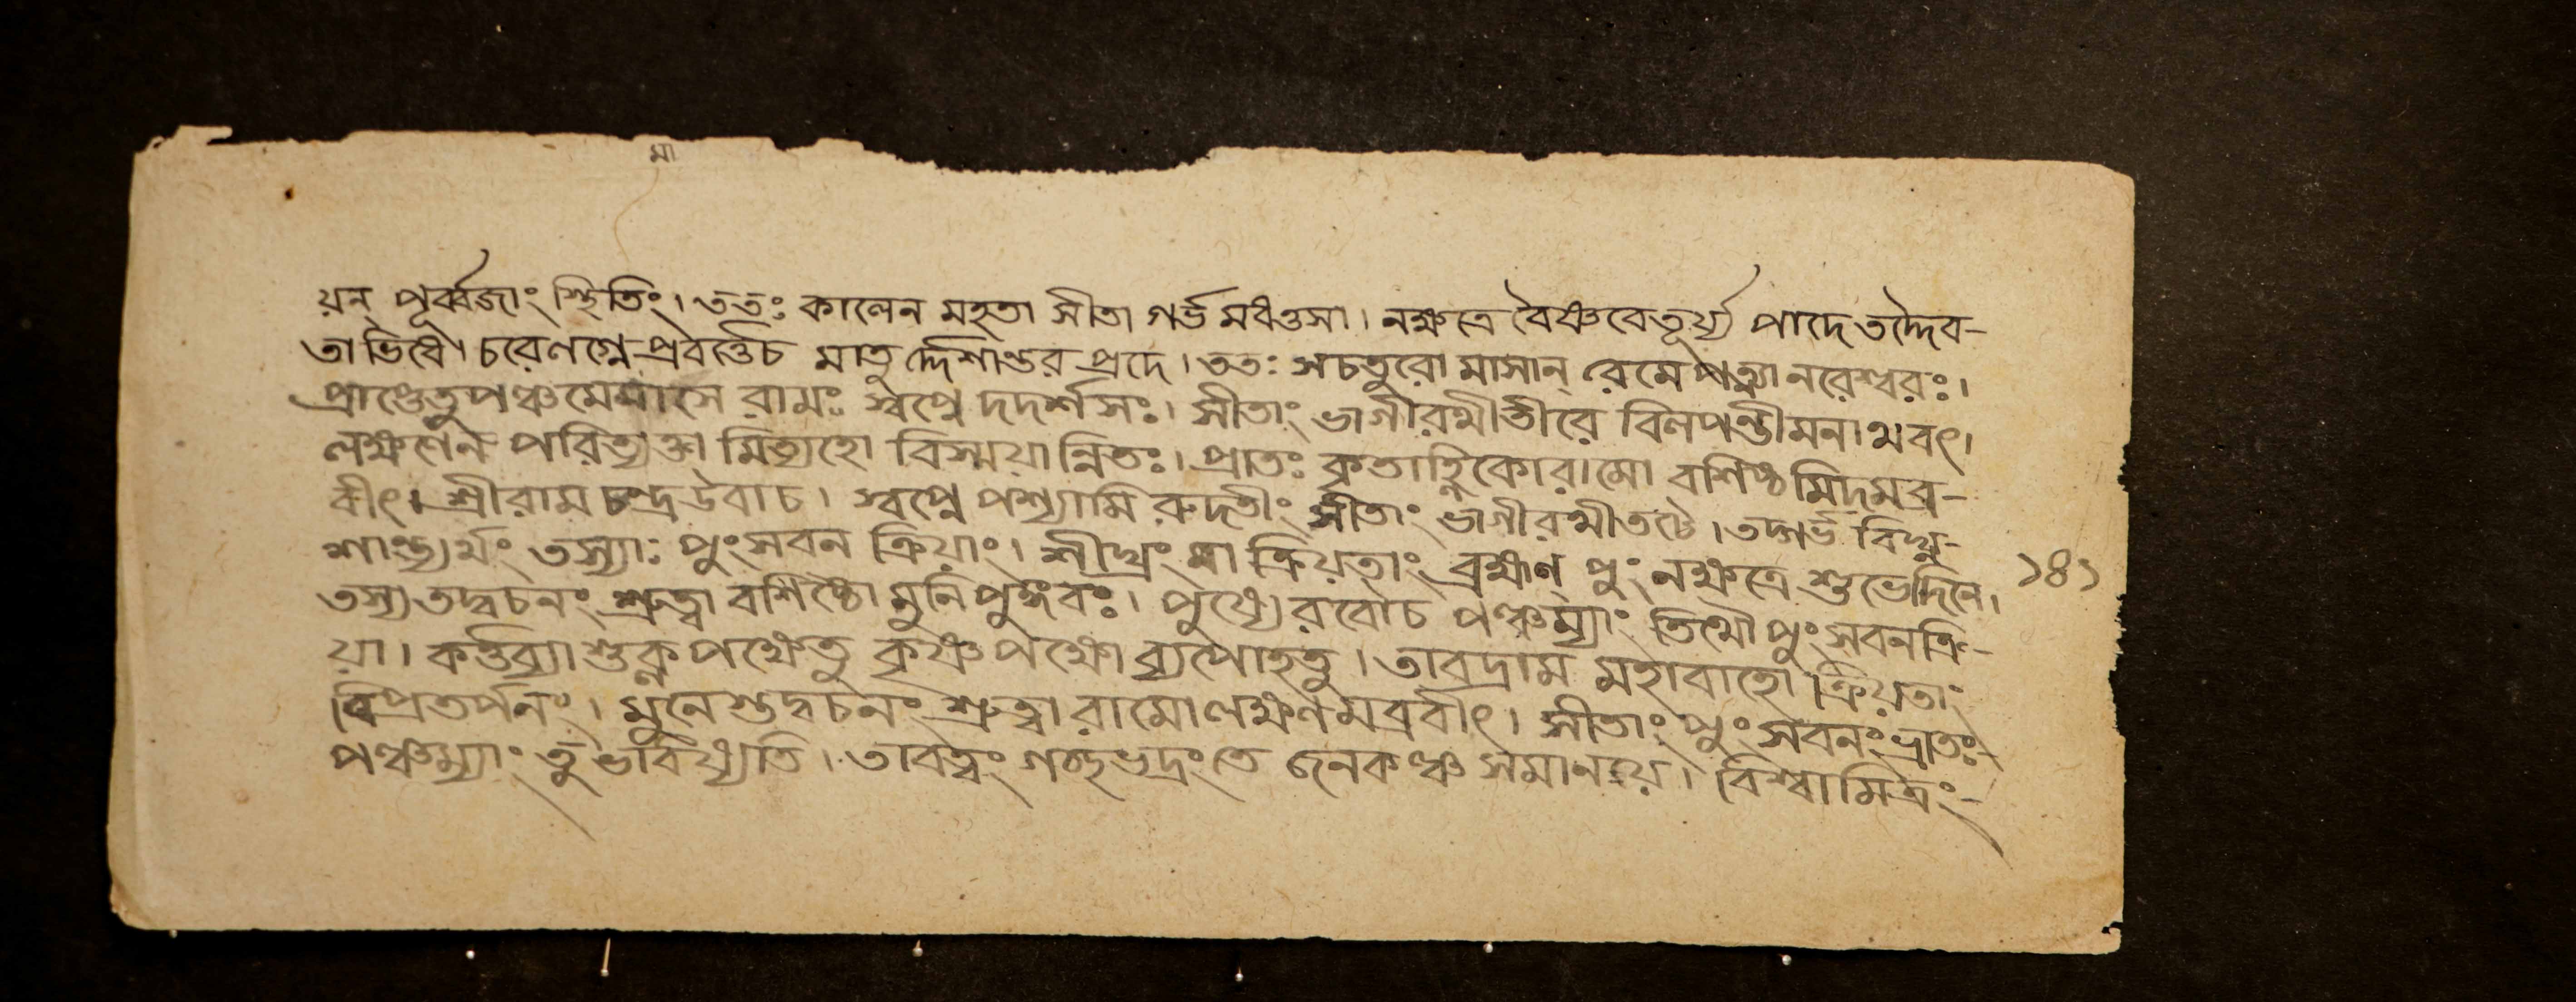 মা
য়ন্ পূর্ব্বজাং স্থিতিং। ততঃ কালেন মহতা সীতা গর্ভমধত্তসা। নক্ষত্রে বৈষ্ণবেতূর্য্য পাদে তদ্দৈব-
তাভিধে। চরেণগ্নে প্রবর্ত্তেচ মাতুর্দ্দেশান্তর প্রদে। ততঃ সচতুরো মাসান্ রেমে পত্ন্যা নরেশ্বরঃ।
প্রাপ্তেতু পঞ্চমেমাসে রামঃ স্বপ্নে দদর্শসঃ। সীতাং ভাগীরথীতীরে বিলপন্তীমনাথবৎ।
লক্ষণেন পরিত্যক্তা মিত্যহো বিস্ময়ান্বিতঃ। প্রাতঃ কৃতাহ্নিকোরামো বশিষ্ঠমিদমব্র-
বীৎ। শ্রীরামচন্দ্রউবাচ। স্বপ্নে পশ্যামি রুদতীং সীতাং ভাগীরথীতটে। তদ্গর্ভ বিঘ্ন-
শান্ত্যর্থং তস্যাঃ পুংসবন ক্রিয়াং। শীঘ্রং মা ক্রিয়তাং ব্রহ্মণ্ পুং নক্ষত্রে শুভেদিনে।
১৪১
তস্যতদ্বচনং শ্রুত্বা বশিষ্ঠো মুনিপুঙ্গবঃ। পুষ্যেরবৌচ পঞ্চম্যাং তিথৌ পুংসবনক্রি-
য়া। কর্ত্তব্যা শুক্লপক্ষেতু কৃষ্ণপক্ষো ব্যপোহতু। তাবদ্রাম মহাবাহো ক্রিয়তাং
বিপ্রতর্পনং। মুনেস্তদ্বচনং শ্রুত্বা রামোলক্ষণমব্রবীৎ। সীতাং পুংসবনং ভ্রাতঃ
পঞ্চম্যাং তু ভবিষ্যতি। তাবত্ত্বং গচ্ছভদ্রংতে জনকঞ্চ সমানয়। বিশ্বামিত্রং-